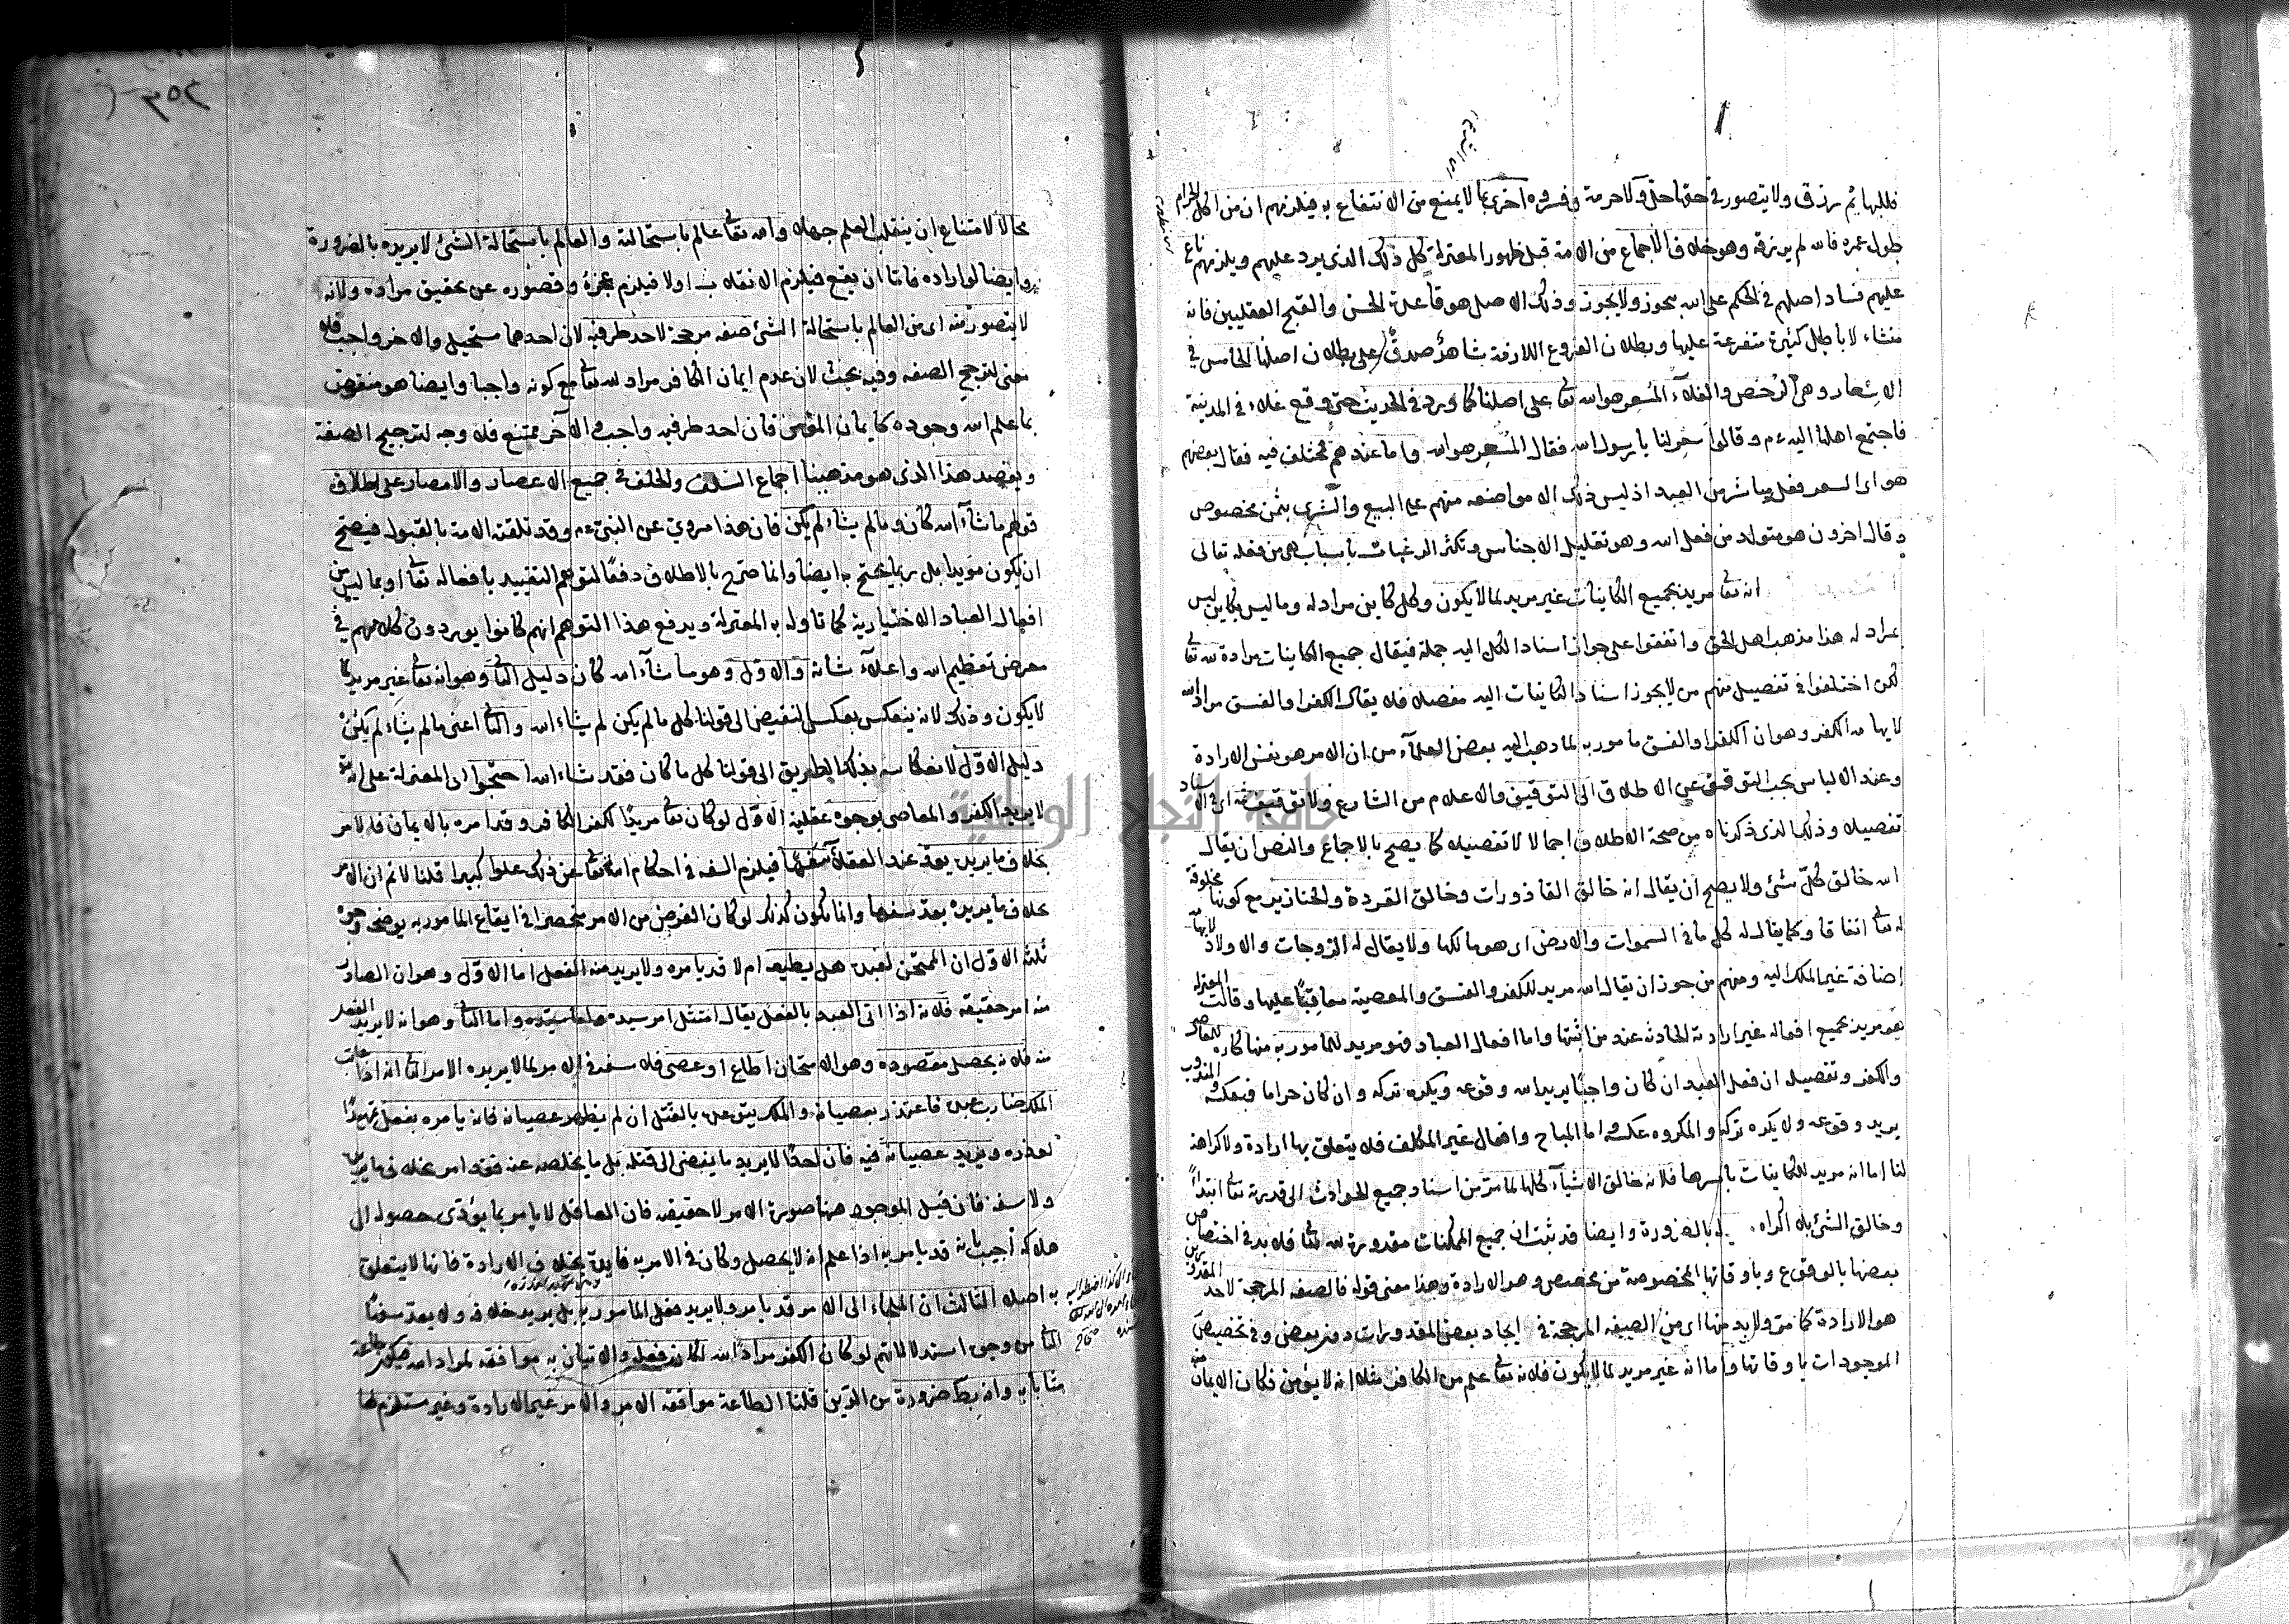 فللبهائم رزق ولا يتصور في حقها حل ولا حرمة وفسروه اخرى بما لا يمنع من الانتفاع به فيلزمهم ان من اكل الحرام
طول عمره فالله لم يرزقه وهو خلاف الاجماع من الامة قبل ظهور المعتزلة كل ذلك الذي يرد عليهم ويلزمهم
عليهم فساد اصلهم في الحكم على الله بيجوز ولا يجوز وذلك الاصل هو قاعدة الحسن والقبح العقليين فانه
منشاء لاباطيل كثيرة متفرعة عليها وبطلان الفروع اللازمة شاهد صدق على بطلان اصلها الخامس في
الاسعار وهي الرخص والغلاء المسعر هو الله تعا على اصلنا كما ورد في الحديث حين وقع غلاء في المدينة
فاجتمع اهلها اليه عم وقالوا سعر لنا يا رسول الله فقال المسعر هو الله واما عندهم فمختلف فيه فقال بعضهم
هو اي السعر فعل مباشر من العبد اذ ليس ذلك الا مواضعه منهم على البيع والشرى بثمن مخصوص
وقال اخرون هو متولد من فعل الله وهو تقليل الاجناس وتكثر الرغبات باسباب هي من فعله تعالى
انه تعا مريد لجميع الكاينات غير مريد لما لا يكون وكل كاين مراد له وما ليس بكاين ليس
بمراد له هذا مذهب اهل الحق واتفقوا على جواز اسناد الكل اليه جملة فيقال جميع الكاينات مرادة لله تعا
لكن اختلفوا في تفصيل منهم من لا يجوز اسناد الكاينات اليه مفصله فلا يقال الكفر او الفسق مراد الله
لايهامه الكفر وهو ان الكفر او الفسق مامور به لما ذهب اليه بعض العلماء من ان الامر هو نفس الارادة
وعند الالباس يجب التوقف عن الاطلاق الى التوقيف والاعلام من الشارع ولا توقيف ثمه اي في الاسناد
تفصيله وذلك الذي ذكرناه من صحة الاطلاق اجمالا لا تفصيله كما يصح بالاجماع والنص ان يقال
الله خالق كل شئ ولا يصح ان يقال انه خالق القاذورات وخالق القردة والخنازير مع كونها مخلوقة
له تعا اتفاقا وكما يقال له كل ما في السموات والارض اي هو مالكها ولا يقال له الزوجات والاولاد لايهامه
اضافة غير الملك اليه ومنهم من جوز ان يقال الله مريد للكفر والفسق والمعصية معاقبا عليها وقالت المعتزلة
هو مريد لجميع افعاله غير ارادته الحادثه عند من اثبتها واما افعال العباد فهو مريد للمامور به منها كاره للمعاصي
والكفر وتفصيله ان فعل العبد ان كان واجبا يريد الله وقوعه ويكره تركه وان كان حراما فبعكسه والمندوب
يريد وقوعه ولا يكره تركه والمكروه عكسه واما المباح وافعال غير المكلف فلا يتعلق بها ارادة ولا كراهة
لنا اما انه مريد للكاينات باسرها فلانه خالق الاشياء كلها لما مر من اسناد جميع الحوادث الى قدرته تعا ابتداء
وخالق الشئ بلا اكراه له بالضرورة وايضا قد ثبت ان جميع الممكنات مقدورة لله تعا فلا بد في اختصاص
بعضها بالوقوع وباوقاتها المخصوصة من مخصص وهو الارادة وهذا معنى قوله فالصفة المرجحة لاحد المقدورين
هو الارادة كما مر ولا بد منها اي من الصفه المرجحة في ايجاد بعض المقدورات دون بعض وفي تخصيص
الموجودات باوقاتها واما انه غير مريد لما لا يكون فلانه تعا علم من الكافر مثلا انه لا يؤمن فكان الايمان منه
٣٥٢
محالا لامتناع ان ينقلب العلم جهلا والله تعا عالم باستحالته والعالم باستحالة الشئ لا يريده بالضرورة
وايضا لو اراده فاما ان يقع فيلزم الانقلاب او لا فيلزم عجزه وقصوره عن تحقيق مراده ولانه
لا يتصور منه اي من العالم باستحالة الشئ صفه مرجحة لاحد طرفيه لان احدهما مستحيل والاخر واجب فلا
معنى لترجح الصفه وفيه بحث لان عدم ايمان الكافر مراد لله تعا مع كونه واجبا وايضا هو منقوض
بما علم الله وجوده كايمان المؤمن فان احد طرفيه واجب والاخر ممتنع فلا وجه لترجيح الصفة
ويعضد هذا الذي هو مذهبنا اجماع السلف والخلف في جميع الاعصار والامصار على اطلاق
قولهم ما شاء الله كان وما لم يشاء لم يكن فان هذا مروي عن النبي عم وقد تلقته الامة بالقبول فيصح
ان يكون مؤيدا بل ربما يحتج به ايضا وانما صرح بالاطلاق دفعا لتوهم التقييد بافعاله تعا او بما ليس من
افعال العباد الاختيارية كما تاوله به المعتزلة ويدفع هذا التوهم انهم كانوا يوردون كلامهم في
معرض تعظيم الله واعلاء شانه والاول وهو ما شاء الله كان دليل الثاني وهو انه تعا غير مريد لما
لا يكون وذلك لانه ينعكس بعكس النقيض الى قولنا كل ما لم يكن لم يشاء الله والثاني اعني ما لم يشاء لم يكن
دليل الاول لانعكاسه بذلك الطريق الى قولنا كل ما كان فقد شاء الله احتجوا اي المعتزلة على انه تعا
لا يريد الكفر والمعاصي بوجوه عقلية الاول لو كان تعا مريدا لكفر الكافر وقد امره بالايمان فالامر
بخلاف ما يريده يعد عند العقلاء سفها فيلزم السفه في احكام الله تعا عن ذلك علوا كبيرا قلنا لا نم ان الامر
بخلاف ما يريده يعد سفها وانما يكون كذلك لو كان الغرض من الامر منحصرا في ايقاع المامور به يوضحه وجوه
ثلثه الاول ان الممتحن لعبده هل يطيعه ام لا قد يامره ولا يريد منه الفعل اما الاول وهو ان الصادر
منه امر حقيقه فلانه اذا اتى العبد بالفعل يقال امتثل امر سيده واما الثاني وهو انه لا يريد الفعل
منه فلانه يحصل مقصوده وهو الامتحان اطاع او عصى فلا سفه في الامر بما لا يريده الامر الثاني انه اذا عاتب
الملك ضارب عبده فاعتذر بعصيانه والملك يتوعده بالقتل ان لم يظهر عصيانه فانه يامره بفعل تمهيدا
لعذره ويريد عصيانه فيه فان احدا لا يريد ما يفضي الى قتله بل ما يخلصه عنه فقد امر بخلاف ما يريده
ولا سفه فان قيل الموجود ههنا صورة الامر لا حقيقه فان العاقل لا يامر بما يؤدي حصوله الى
هلاكه اجيب بانه قد يامر به اذا علم انه لا يحصل وكان في الامر به فايدة بخلاف الارادة فانها لا يتعلق
به اصلا الثالث ان الملجاء الى الامر قد يامر ولا يريد فعل المامور به بل يريد خلافه ولا يعد سفها
الثاني من وجوه استدلالاتهم لو كان الكفر مراد الله لكان فعله والاتيان به موافقة لمراد الله فيكون طاعة
مثابا به وانه بط ضرورة من الدين قلنا الطاعة موافقة الامر والامر غير الارادة وغير مستلزم لها
جامعة النجاح الوطنية